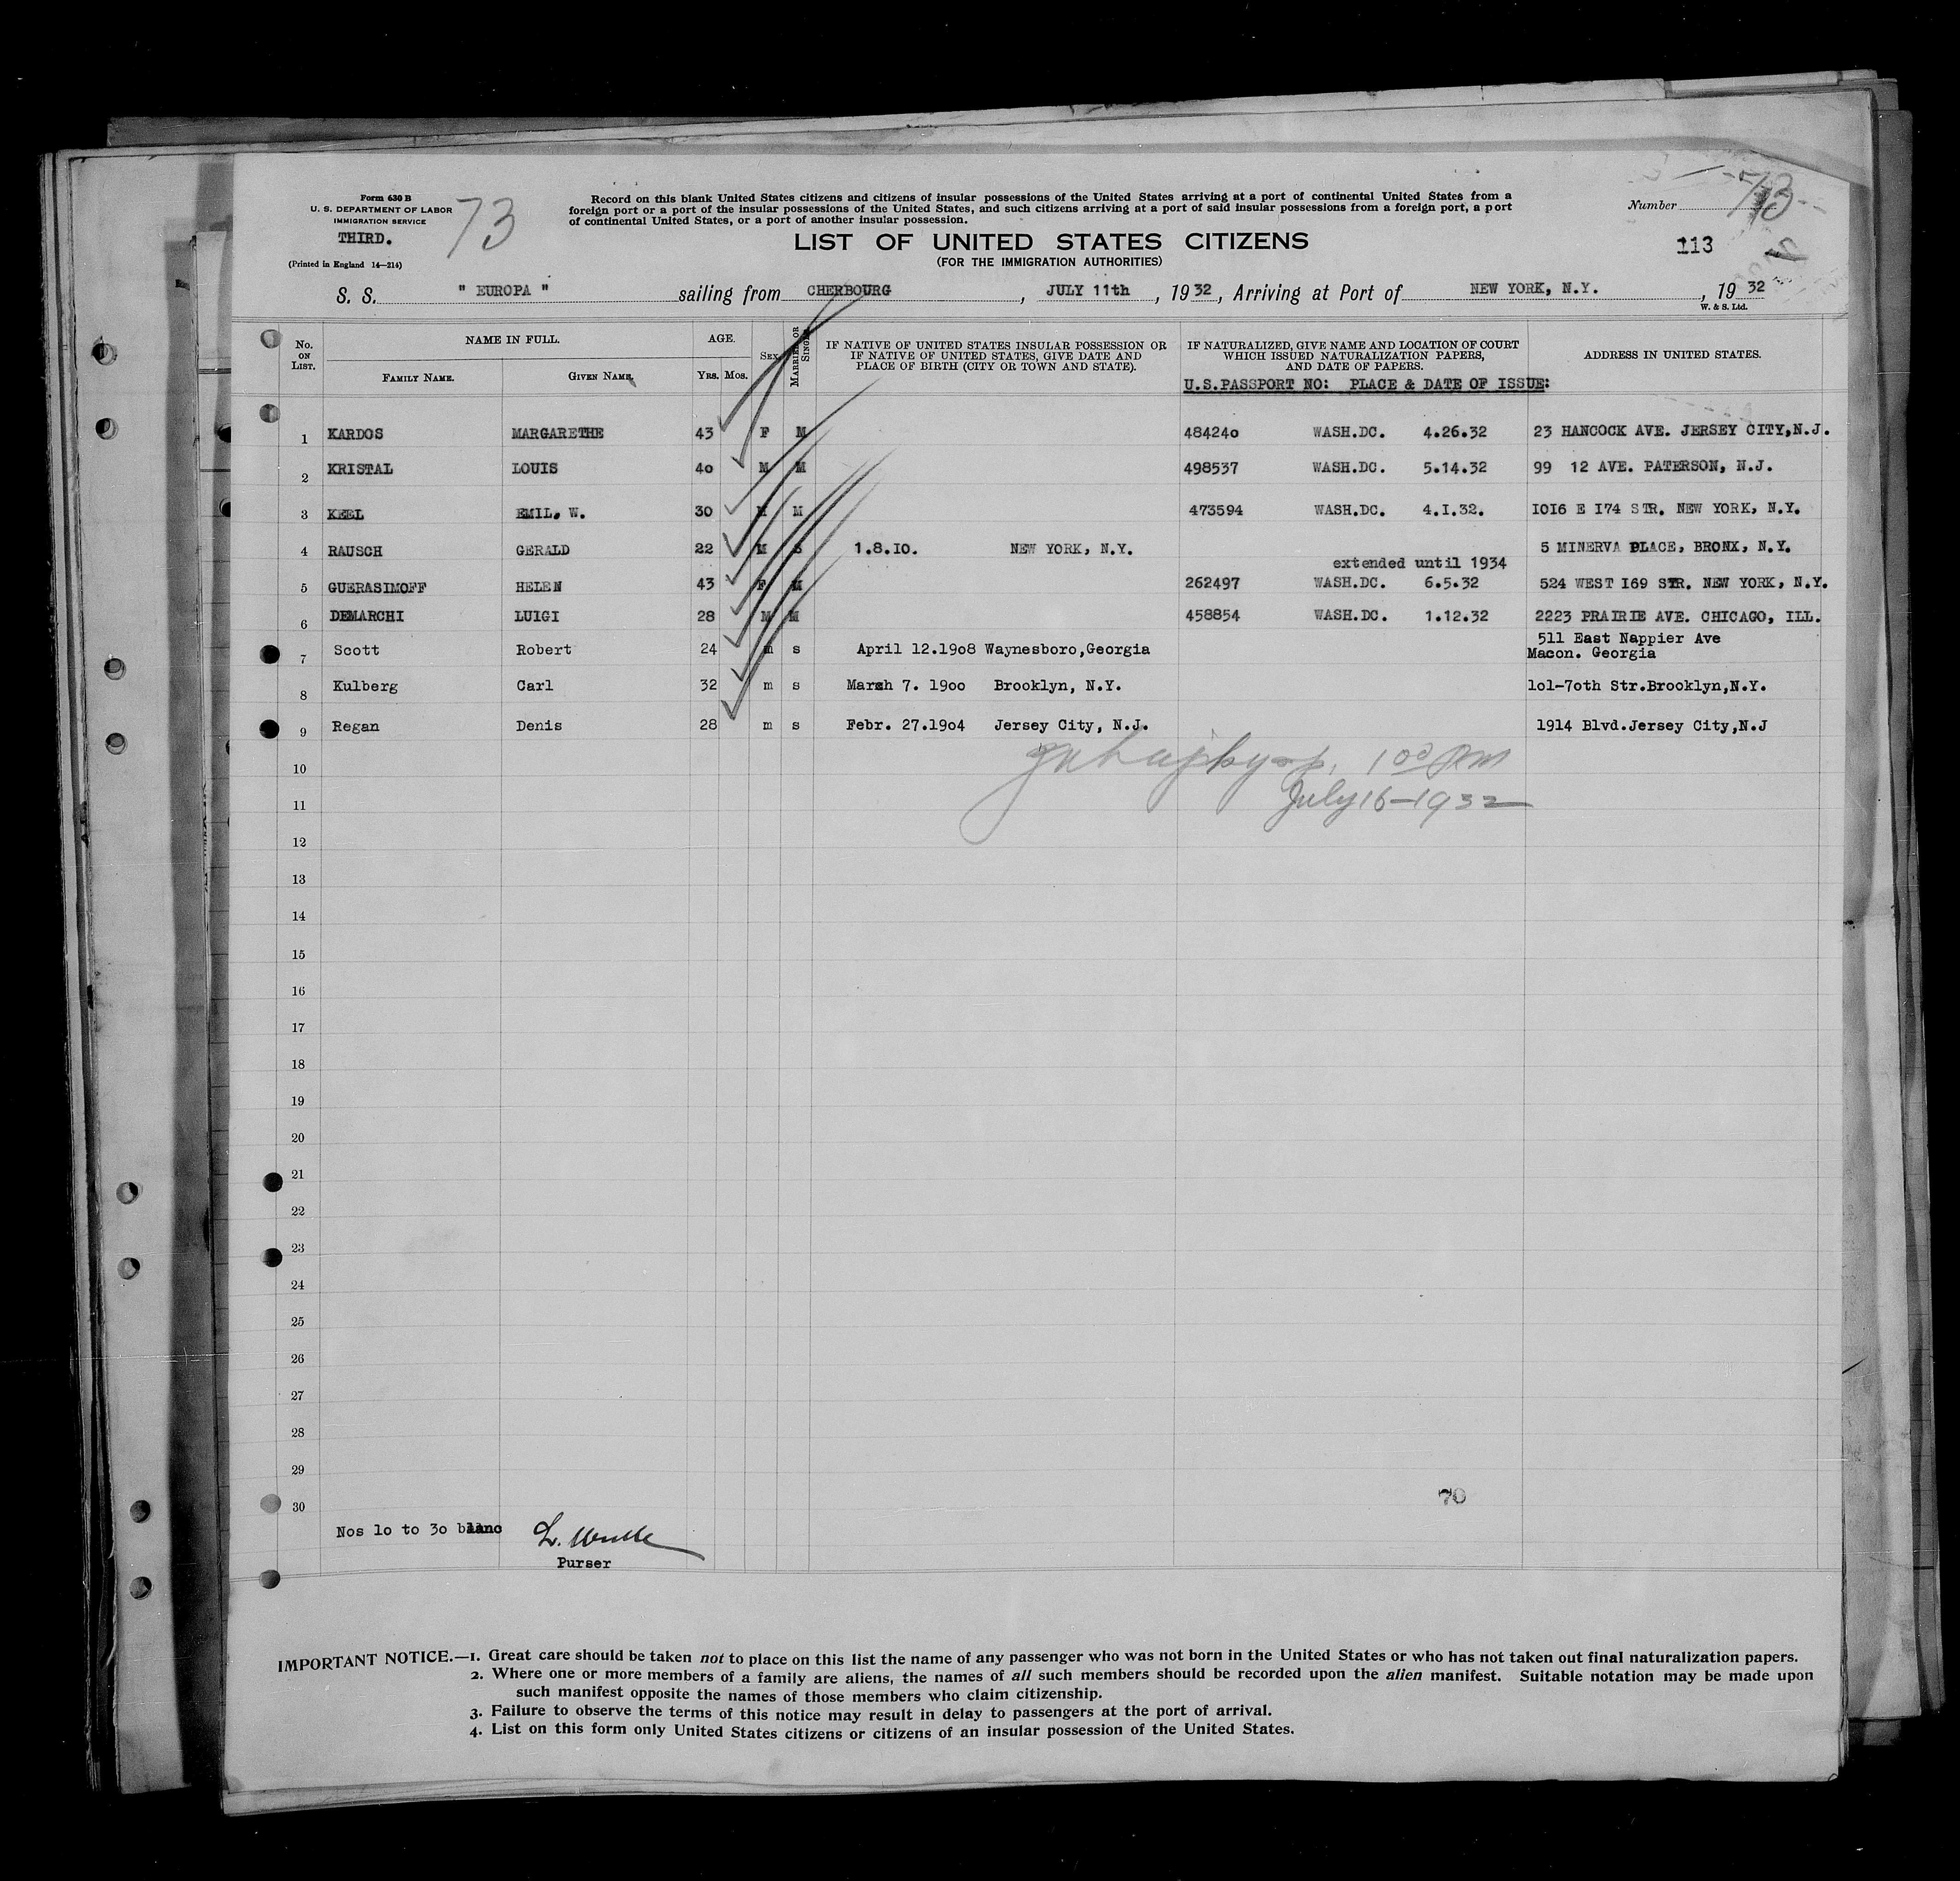 Form 630 B
U. S. DEPARTMENT OF LABOR
IMMIGRATION SERVICE
THIRD.
(Printed in England 14—214)
73
Record on this blank United States citizens and citizens of insular possessions of the United States arriving at a port of continental United States from a
foreign port or a port of the insular possessions of the United States, and such citizens arriving at a port of said insular possessions from a foreign port, a port
of continental United States, or a port of another insular possession.
Number 73
LIST OF UNITED STATES CITIZENS
(FOR THE IMMIGRATION AUTHORITIES)
113
S. S. " EUROPA " sailing from CHERBOURG, JULY 11th, 19 32, Arriving at Port of NEW YORK, N.Y., 19 32
W. & S. Ltd.
No. ON LIST. NAME IN FULL. FAMILY NAME. GIVEN NAME. AGE. YRS. MOS. SEX MARRIED OR SINGLE
IF NATIVE OF UNITED STATES INSULAR POSSESSION OR
IF NATIVE OF UNITED STATES, GIVE DATE AND
PLACE OF BIRTH (CITY OR TOWN AND STATE).
IF NATURALIZED, GIVE NAME AND LOCATION OF COURT
WHICH ISSUED NATURALIZATION PAPERS,
AND DATE OF PAPERS.
U.S.PASSPORT NO: PLACE & DATE OF ISSUE:
ADDRESS IN UNITED STATES.
1 KARDOS MARGARETHE 43 F M 484240 WASH.DC. 4.26.32 23 HANCOCK AVE. JERSEY CITY,N.J.
2 KRISTAL LOUIS 40 M M 498537 WASH.DC. 5.14.32 99 12 AVE. PATERSON, N.J.
3 KEEL EMIL, W. 30 M M 473594 WASH.DC. 4.I.32. IOI6 E I74 STR. NEW YORK, N.Y.
4 RAUSCH GERALD 22 M S 1.8.IO. NEW YORK, N.Y. 5 MINERVA PLACE, BRONX, N.Y.
extended until 1934
5 GUERASIMOFF HELEN 43 F M 262497 WASH.DC. 6.5.32 524 WEST I69 STR. NEW YORK, N.Y.
6 DEMARCHI LUIGI 28 M M 458854 WASH.DC. 1.12.32 2223 PRAIRIE AVE. CHICAGO, ILL.
7 Scott Robert 24 m s April 12.19o8 Waynesboro,Georgia 511 East Nappier Ave
Macon. Georgia
8 Kulberg Carl 32 m s March 7. 19oo Brooklyn, N.Y. 1o1-7oth Str.Brooklyn,N.Y.
9 Regan Denis 28 m s Febr. 27.19o4 Jersey City, N.J. 1914 Blvd.Jersey City,N.J
1 00 PM
July 16-1932
10
11
12
13
14
15
16
17
18
19
20
21
22
23
24
25
26
27
28
29
30
70
Nos 1o to 3o blanc
Purser
IMPORTANT NOTICE.—1. Great care should be taken not to place on this list the name of any passenger who was not born in the United States or who has not taken out final naturalization papers.
2. Where one or more members of a family are aliens, the names of all such members should be recorded upon the alien manifest. Suitable notation may be made upon
such manifest opposite the names of those members who claim citizenship.
3. Failure to observe the terms of this notice may result in delay to passengers at the port of arrival.
4. List on this form only United States citizens or citizens of an insular possession of the United States.